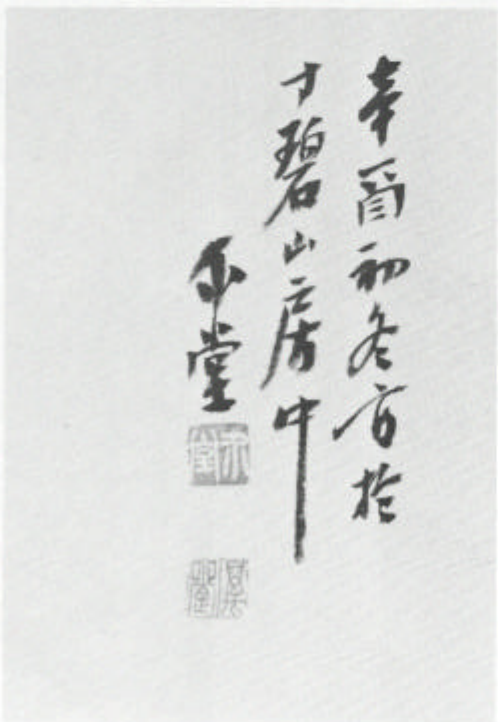 辛酉初冬寫於
寸碧山房中
堂